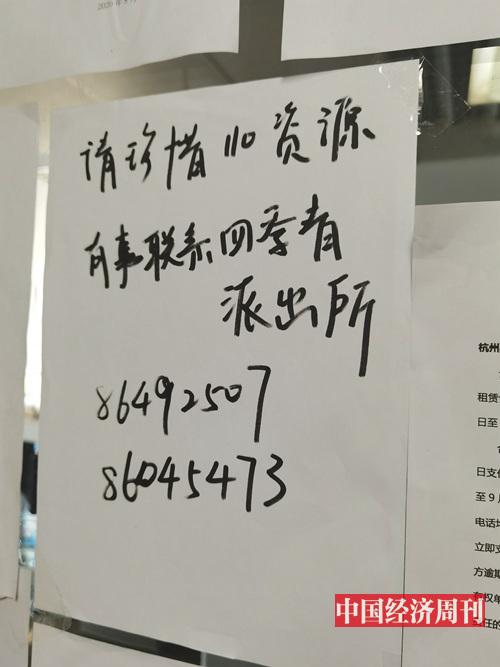 2020年9月
请珍惜110资源
有事联系四季青
派出所
86492507
86045473
杭州
租赁
日至
日支付
至9月
电话
立即支
方逾期
有权单
责任的
中国经济周刊